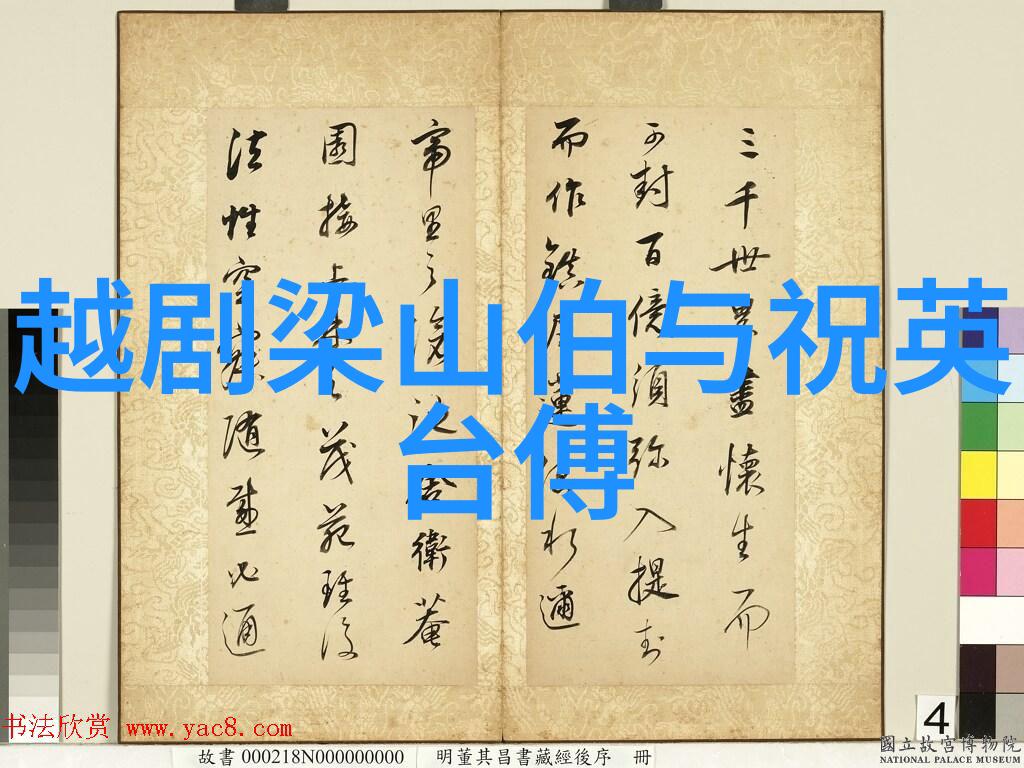 越剧梁山伯与祝英
台傅
三千世界盡懷生而
可封百億須彌入提封
而作鎮蓮邇
里之衛菴
園接上林之茂苑
法性空寂隨感必通
4
书法欣赏 www.yac8.com
故書 000218N000000000 明董其昌書藏經後序 冊
國立故宮博物院
NATIONAL PALACE MUSEUM